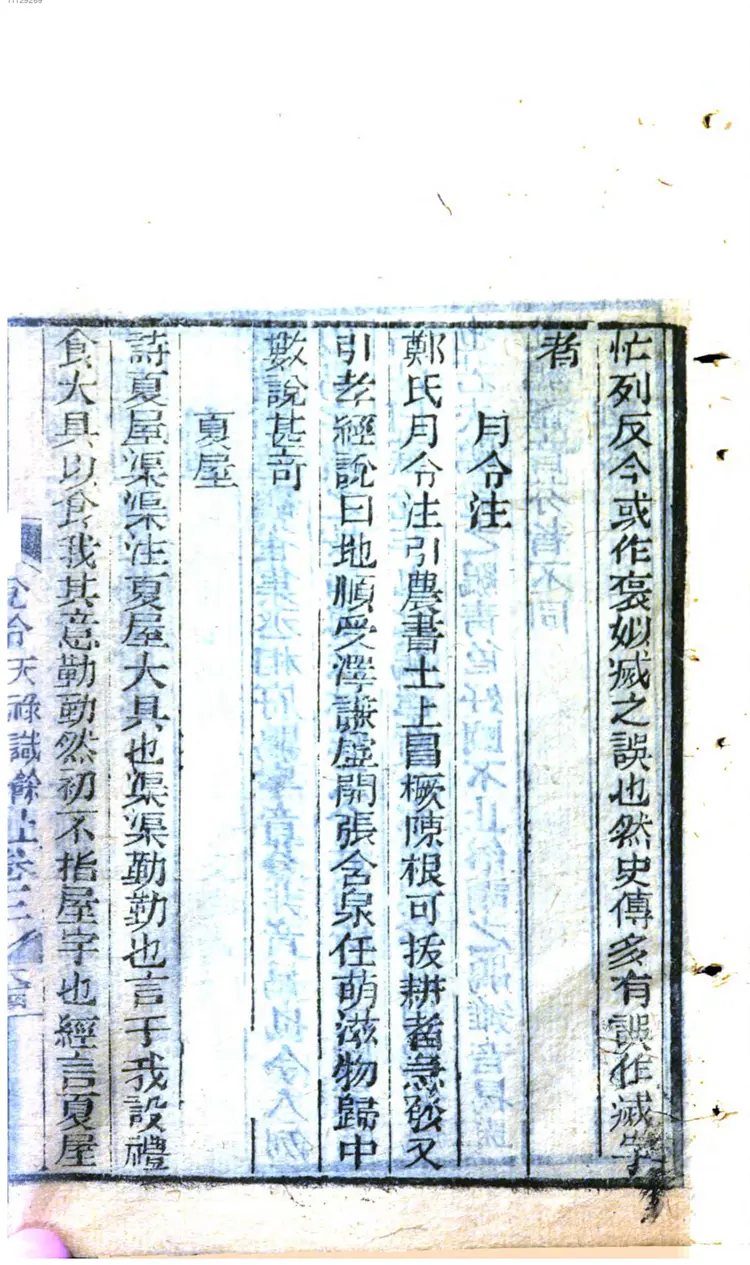 忙列反今或作褒姒滅之誤也然史傳多有誤作滅字
者
月令注
鄭氏月令注引農書土上冒橛陳根可拔耕者急發又
引孝經說曰地順受澤謙虛開張含泉任萌滋物歸中
數說甚奇
夏屋
詩夏屋渠渠注夏屋大具也渠渠勤勤也言于我設禮
食大具以食我其意勤勤然初不指屋字也經言夏屋
天祿識餘 卷三
71129269